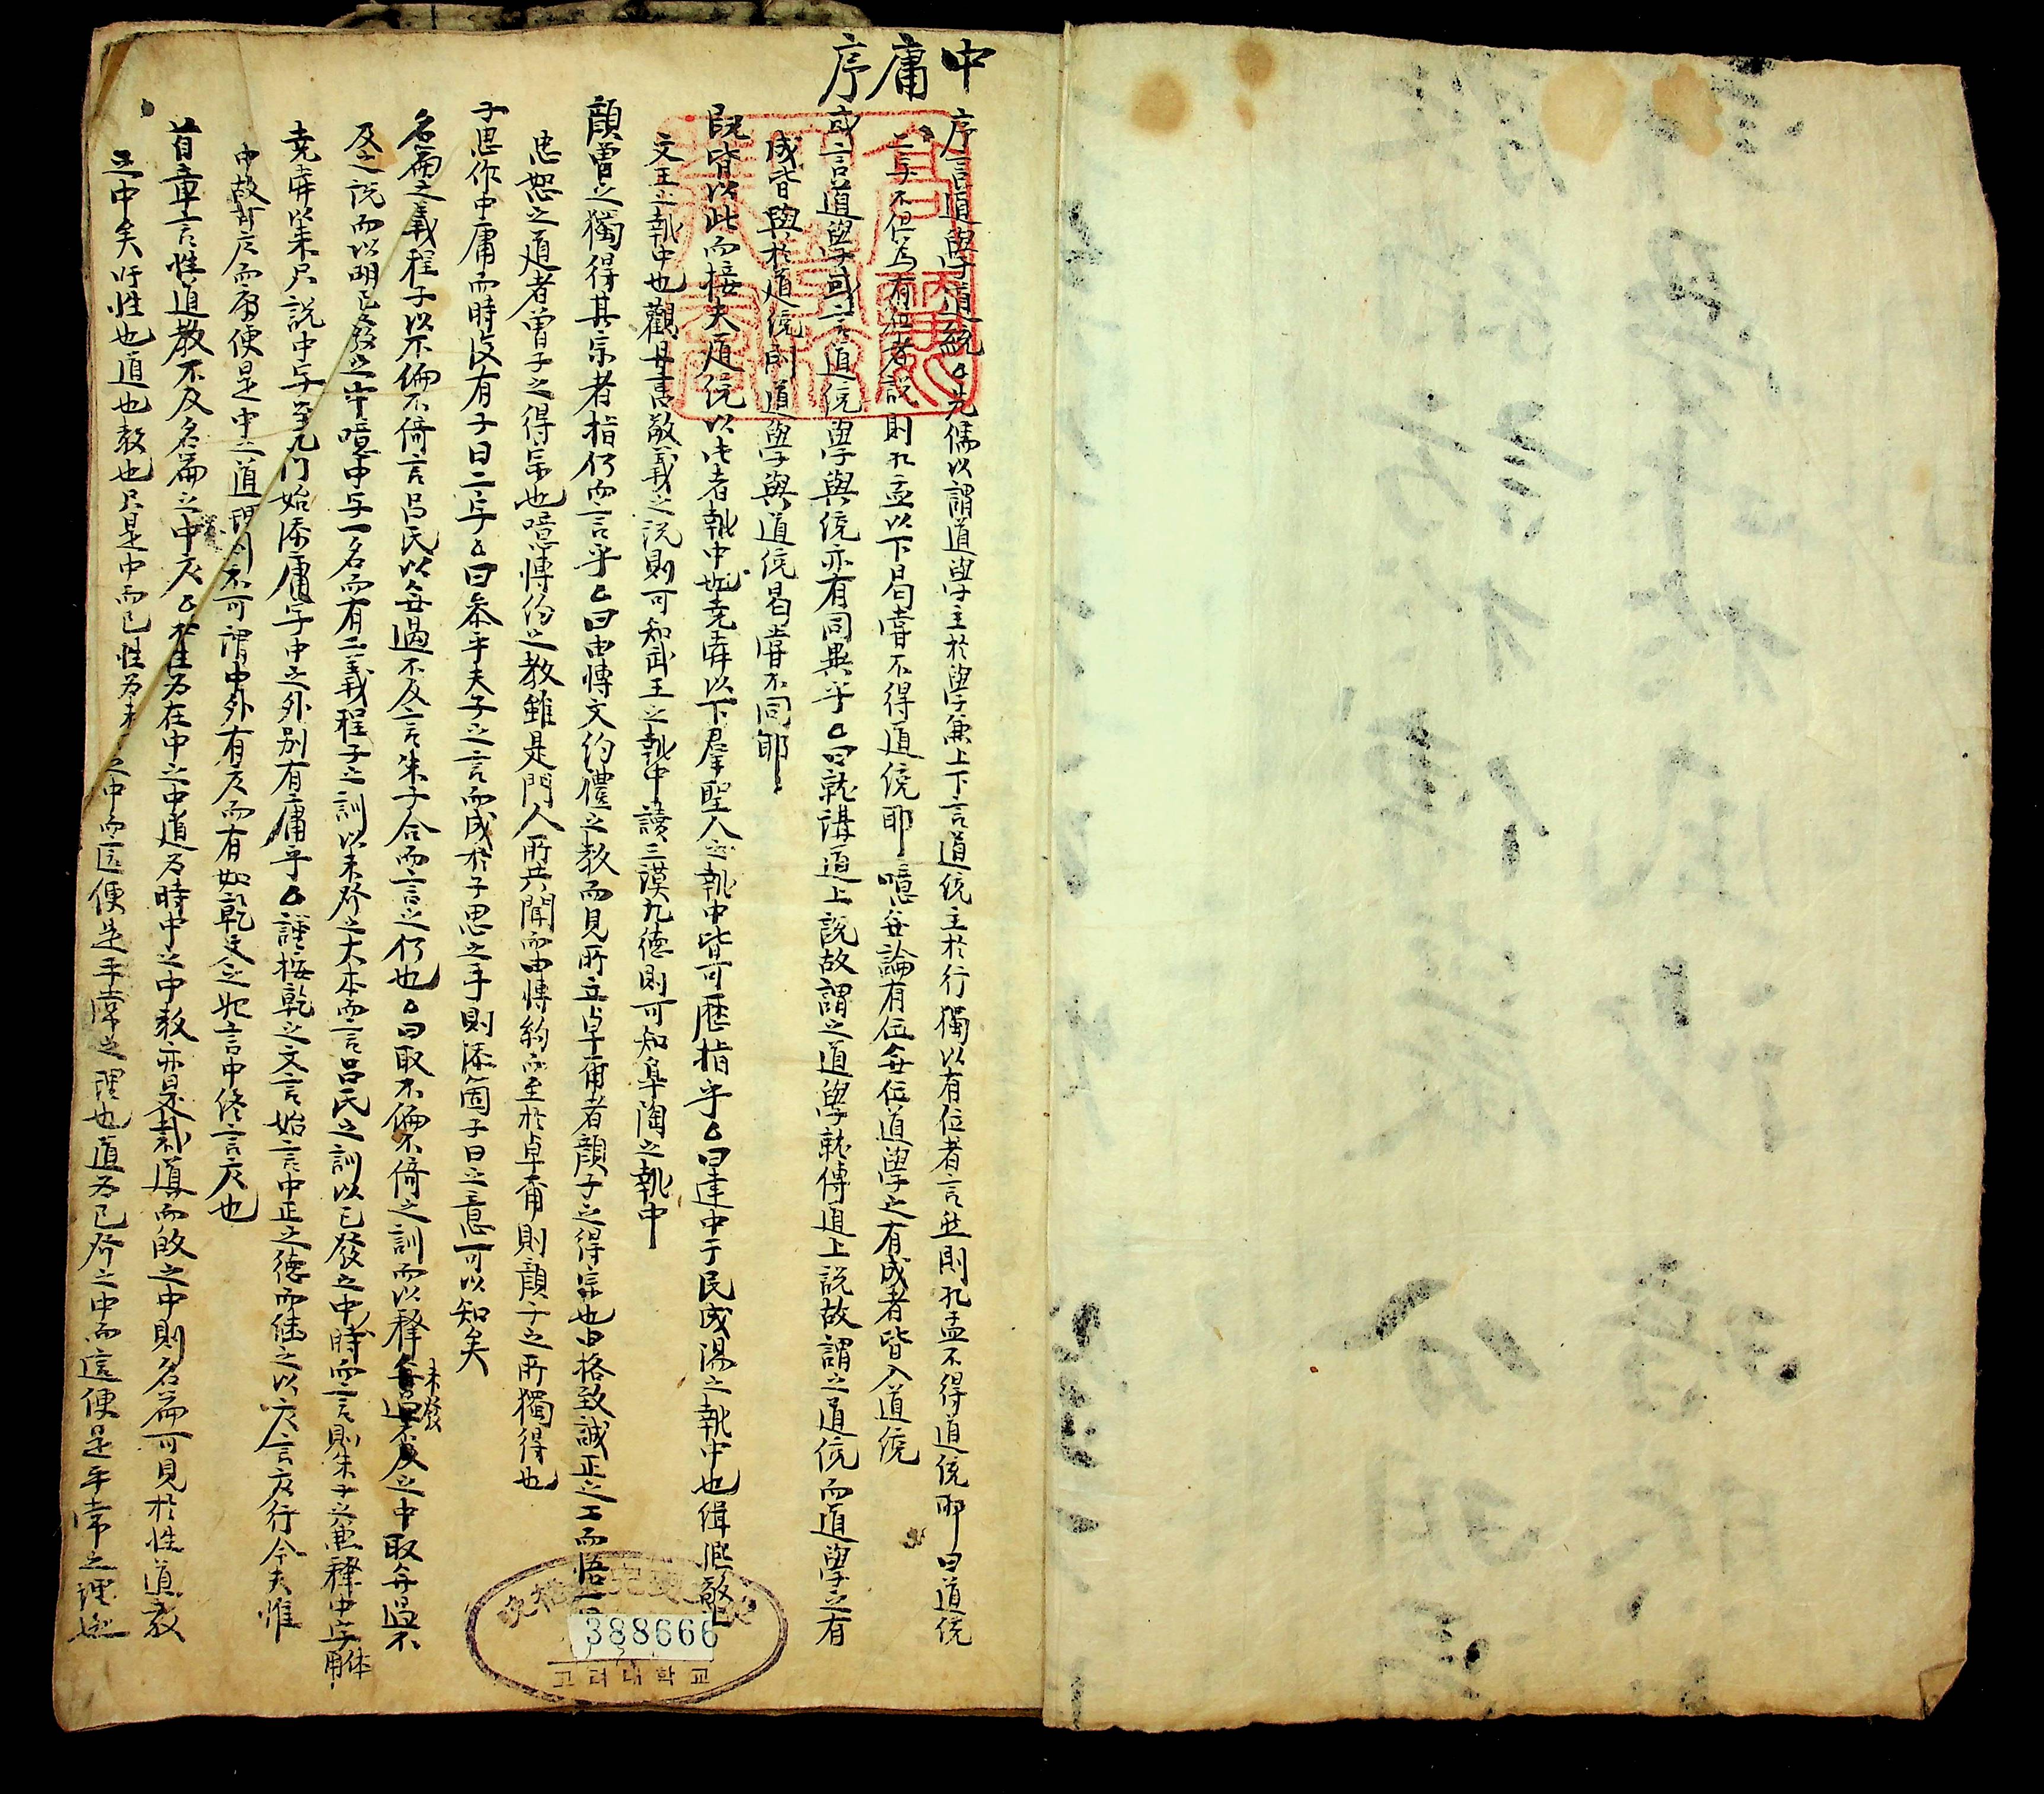 中庸序
序言道學道統△先儒以謂道學主於學兼上下言道統主於行獨以有位者言然則孔孟不得道統耶曰道統
二字不但為有位者說則孔孟以下曷嘗不得道統耶噫無論有位無位道學之有成者皆入道統
或言道學或言道統學與統亦有同異乎△曰就講道上說故謂之道學就傳道上說故謂之道統而道學之有
成皆與於道統則道學與道統曷嘗不同耶
既皆以此而接夫道統以此者執中也堯舜以下羣聖人之執中皆可歷指乎△曰建中于民成湯之執中也緝熙敬止
文王之執中也觀丹書敬義之說則可知武王之執中讀三謨九德則可知皐陶之執中
顔曾之獨得其宗者指何而言乎△曰由博文約禮之教而見所立卓爾者顔子之得宗也由格致誠正之工而悟一貫
忠恕之道者曾子之得宗也噫博約之教雖是門人所共聞而由博約而至於卓爾則顔子之所獨得也
子思作中庸而時复有子曰二字△曰夲乎夫子之言而成於子思之手則添箇子曰之意可以知矣
名篇之義程子以不偏不倚言呂氏以無過不及言朱子合而言之何也△曰取不偏不倚之訓而以釋未發之中取無過不
及之說而以明已發之中噫中字一名而有二義程子之訓以未發之大本而言呂氏之訓以已發之中時而言則朱子之兼釋中字體用
堯舜以來只說中字至孔門始添庸字中之外別有庸乎△謹按乾之文言始言中正之德而継之以庸言庸行今夫惟
中故可庸而庸便是中之道則不可謂中外有庸而有如乾文之始言中終言庸也
首章言性道教不及名篇之中庸△性為在中之中道為時中之中教亦是裁道而啟之中則名篇可見於性道教
之中矣吁性也道也教也只是中而已性為未發之中而這便是平常之理也道為已發之中而這便是平常之理也
388666
고려대학교